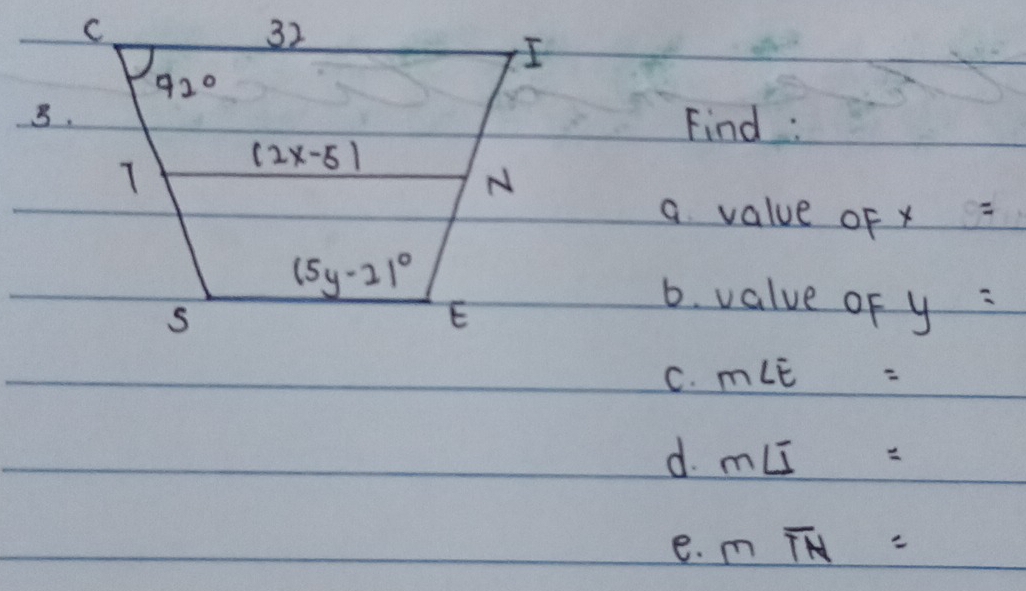 C 32 I
92°
3.
T (2x-5) N
(5y-2)°
S E
Find :
a. value of x =
b. value of y =
c. m∠E =
d. m∠I =
e. m T̅N̅ =